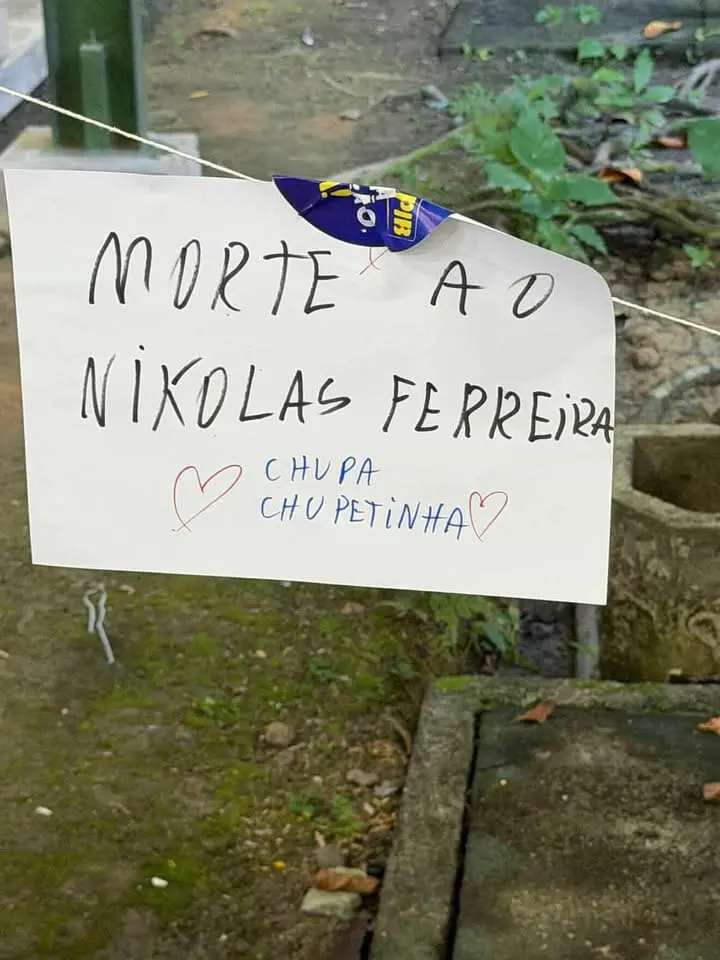 MORTE AO
NIKOLAS FERREIRA
CHUPA
CHUPETINHA